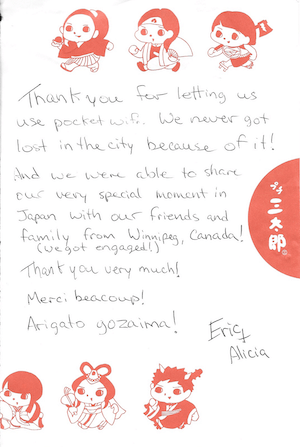 Thank you for letting us
use pocket wifi. We never got
lost in the city because of it!
And we were able to share
our very special moment in
Japan with our friends and
family from Winnipeg, Canada!
(we got engaged!)
Thank you very much!
Merci beacoup!
Arigato gozaima!
Eric +
Alicia
三太郎